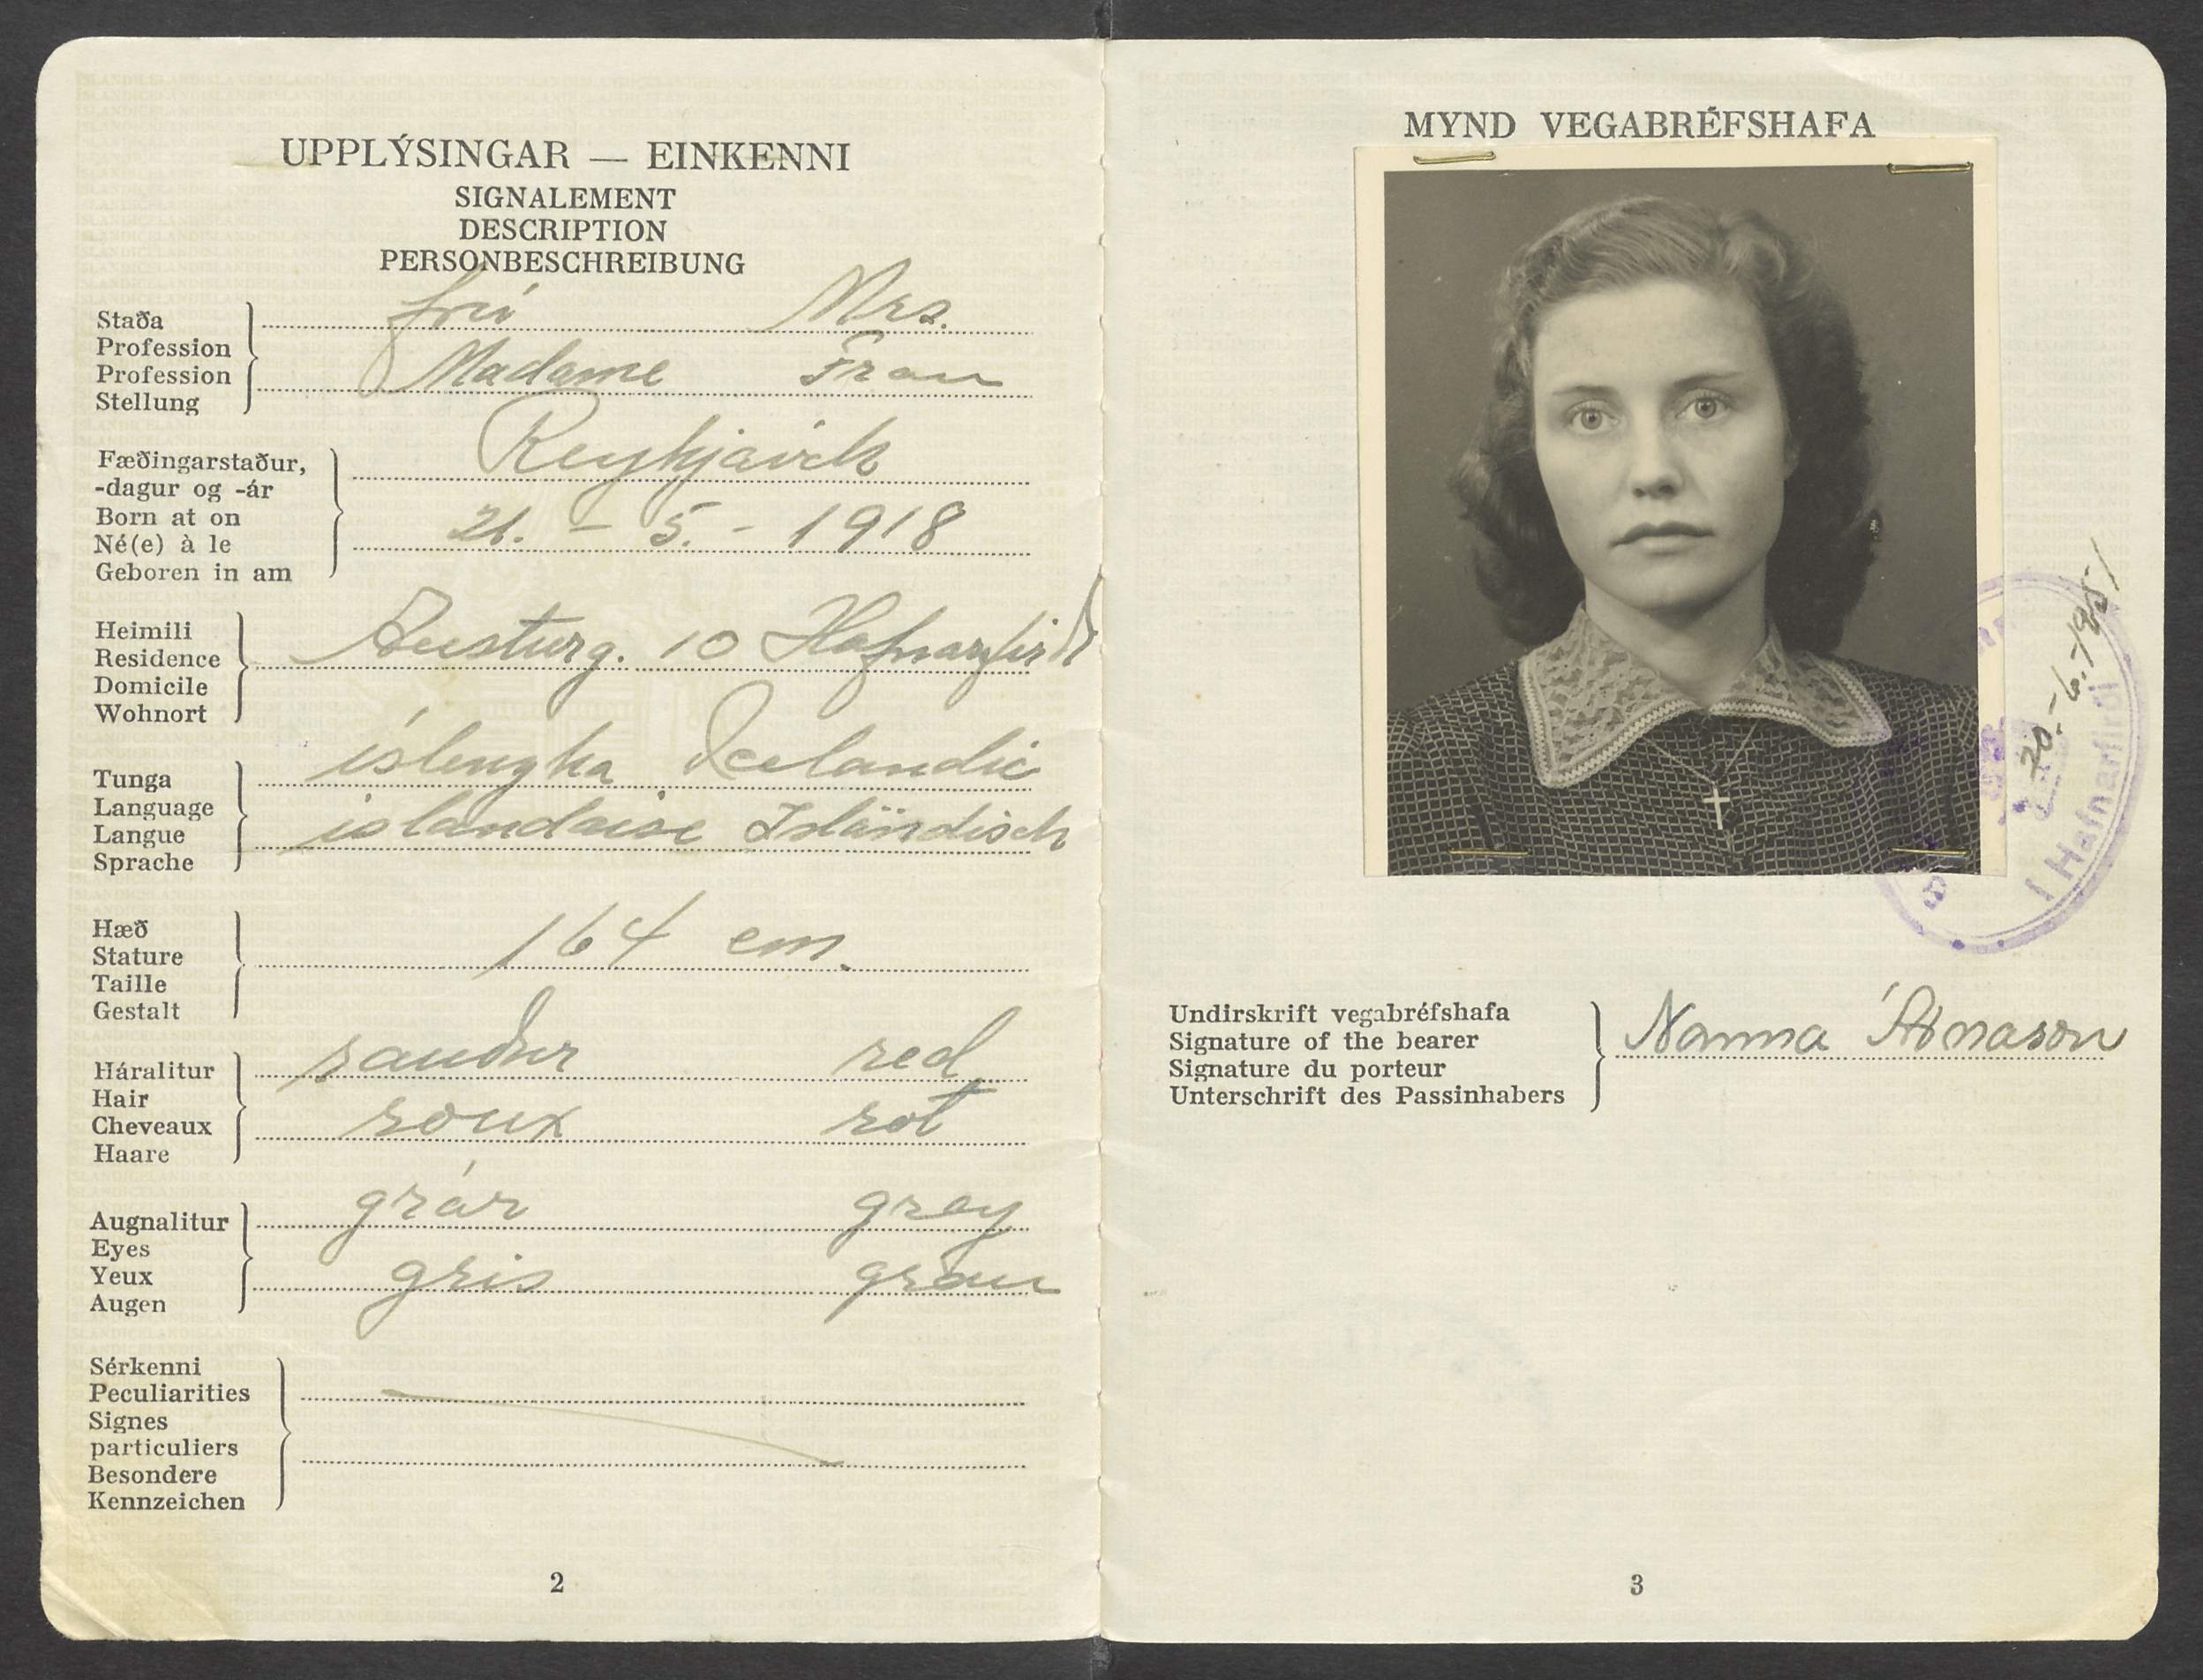 UPPLÝSINGAR — EINKENNI
SIGNALEMENT
DESCRIPTION
PERSONBESCHREIBUNG
Staða
Profession
Profession
Stellung
frú Mrs.
Madame Frau
Fæðingarstaður,
-dagur og -ár
Born at on
Né(e) à le
Geboren in am
Reykjavík
21. - 5. - 1918
Heimili
Residence
Domicile
Wohnort
Austurg. 10 Hafnarfirði
Tunga
Language
Langue
Sprache
íslenzka Icelandic
islandaise Isländisch
Hæð
Stature
Taille
Gestalt
164 cm.
Háralitur
Hair
Cheveaux
Haare
rauður red
roux rot
Augnalitur
Eyes
Yeux
Augen
grár grey
gris grau
Sérkenni
Peculiarities
Signes
particuliers
Besondere
Kennzeichen
2
MYND VEGABRÉFSHAFA
20.-6.-1951
í Hafnarfirði
Undirskrift vegabréfshafa
Signature of the bearer
Signature du porteur
Unterschrift des Passinhabers
Nanna Árnason
3